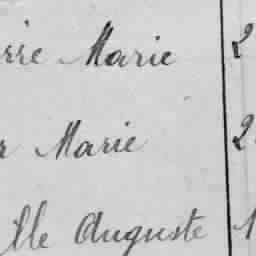 rre Marie 2
r Marie 2
lle Auguste 1